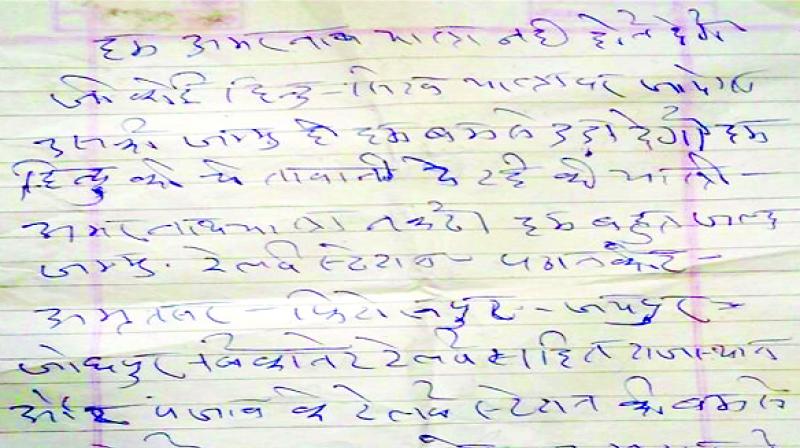 हम अमरनाथ यात्रा नही होने देगे
जो कोई हिन्दु-सिख यात्रा पर जायेगा
उसको जम्मु में हम बम से उड़ा देगे। हम
हिन्दु को चेतावनी दे रहे की यात्री-
अमरनाथ यात्रा न करे। हम बहुत जल्द
जम्मु. रेलवे स्टेशन - पठानकोट -
अमृतसर - फिरोजपुर - जयपुर -
जोधपुर - बिकानेर रेलवे सहित राजस्थान
और पंजाब के रेलवे स्टेशन को बम से